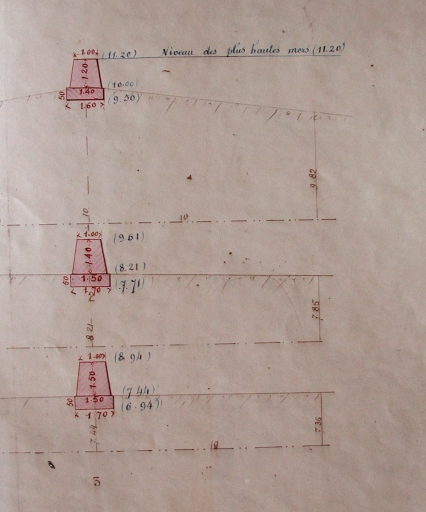 1.00 (11.20) Niveau des plus hautes mers (11.20)
1.20
(10.00)
50 1.40
(9.50)
1.60
9.82
10 10
1.00 (9.61)
1.40
(8.21)
50 1.50
(7.71)
1.70
7.85
8.21
1.00 (8.94)
1.50
(7.44)
50 1.50
(6.94)
1.70
7.44
5